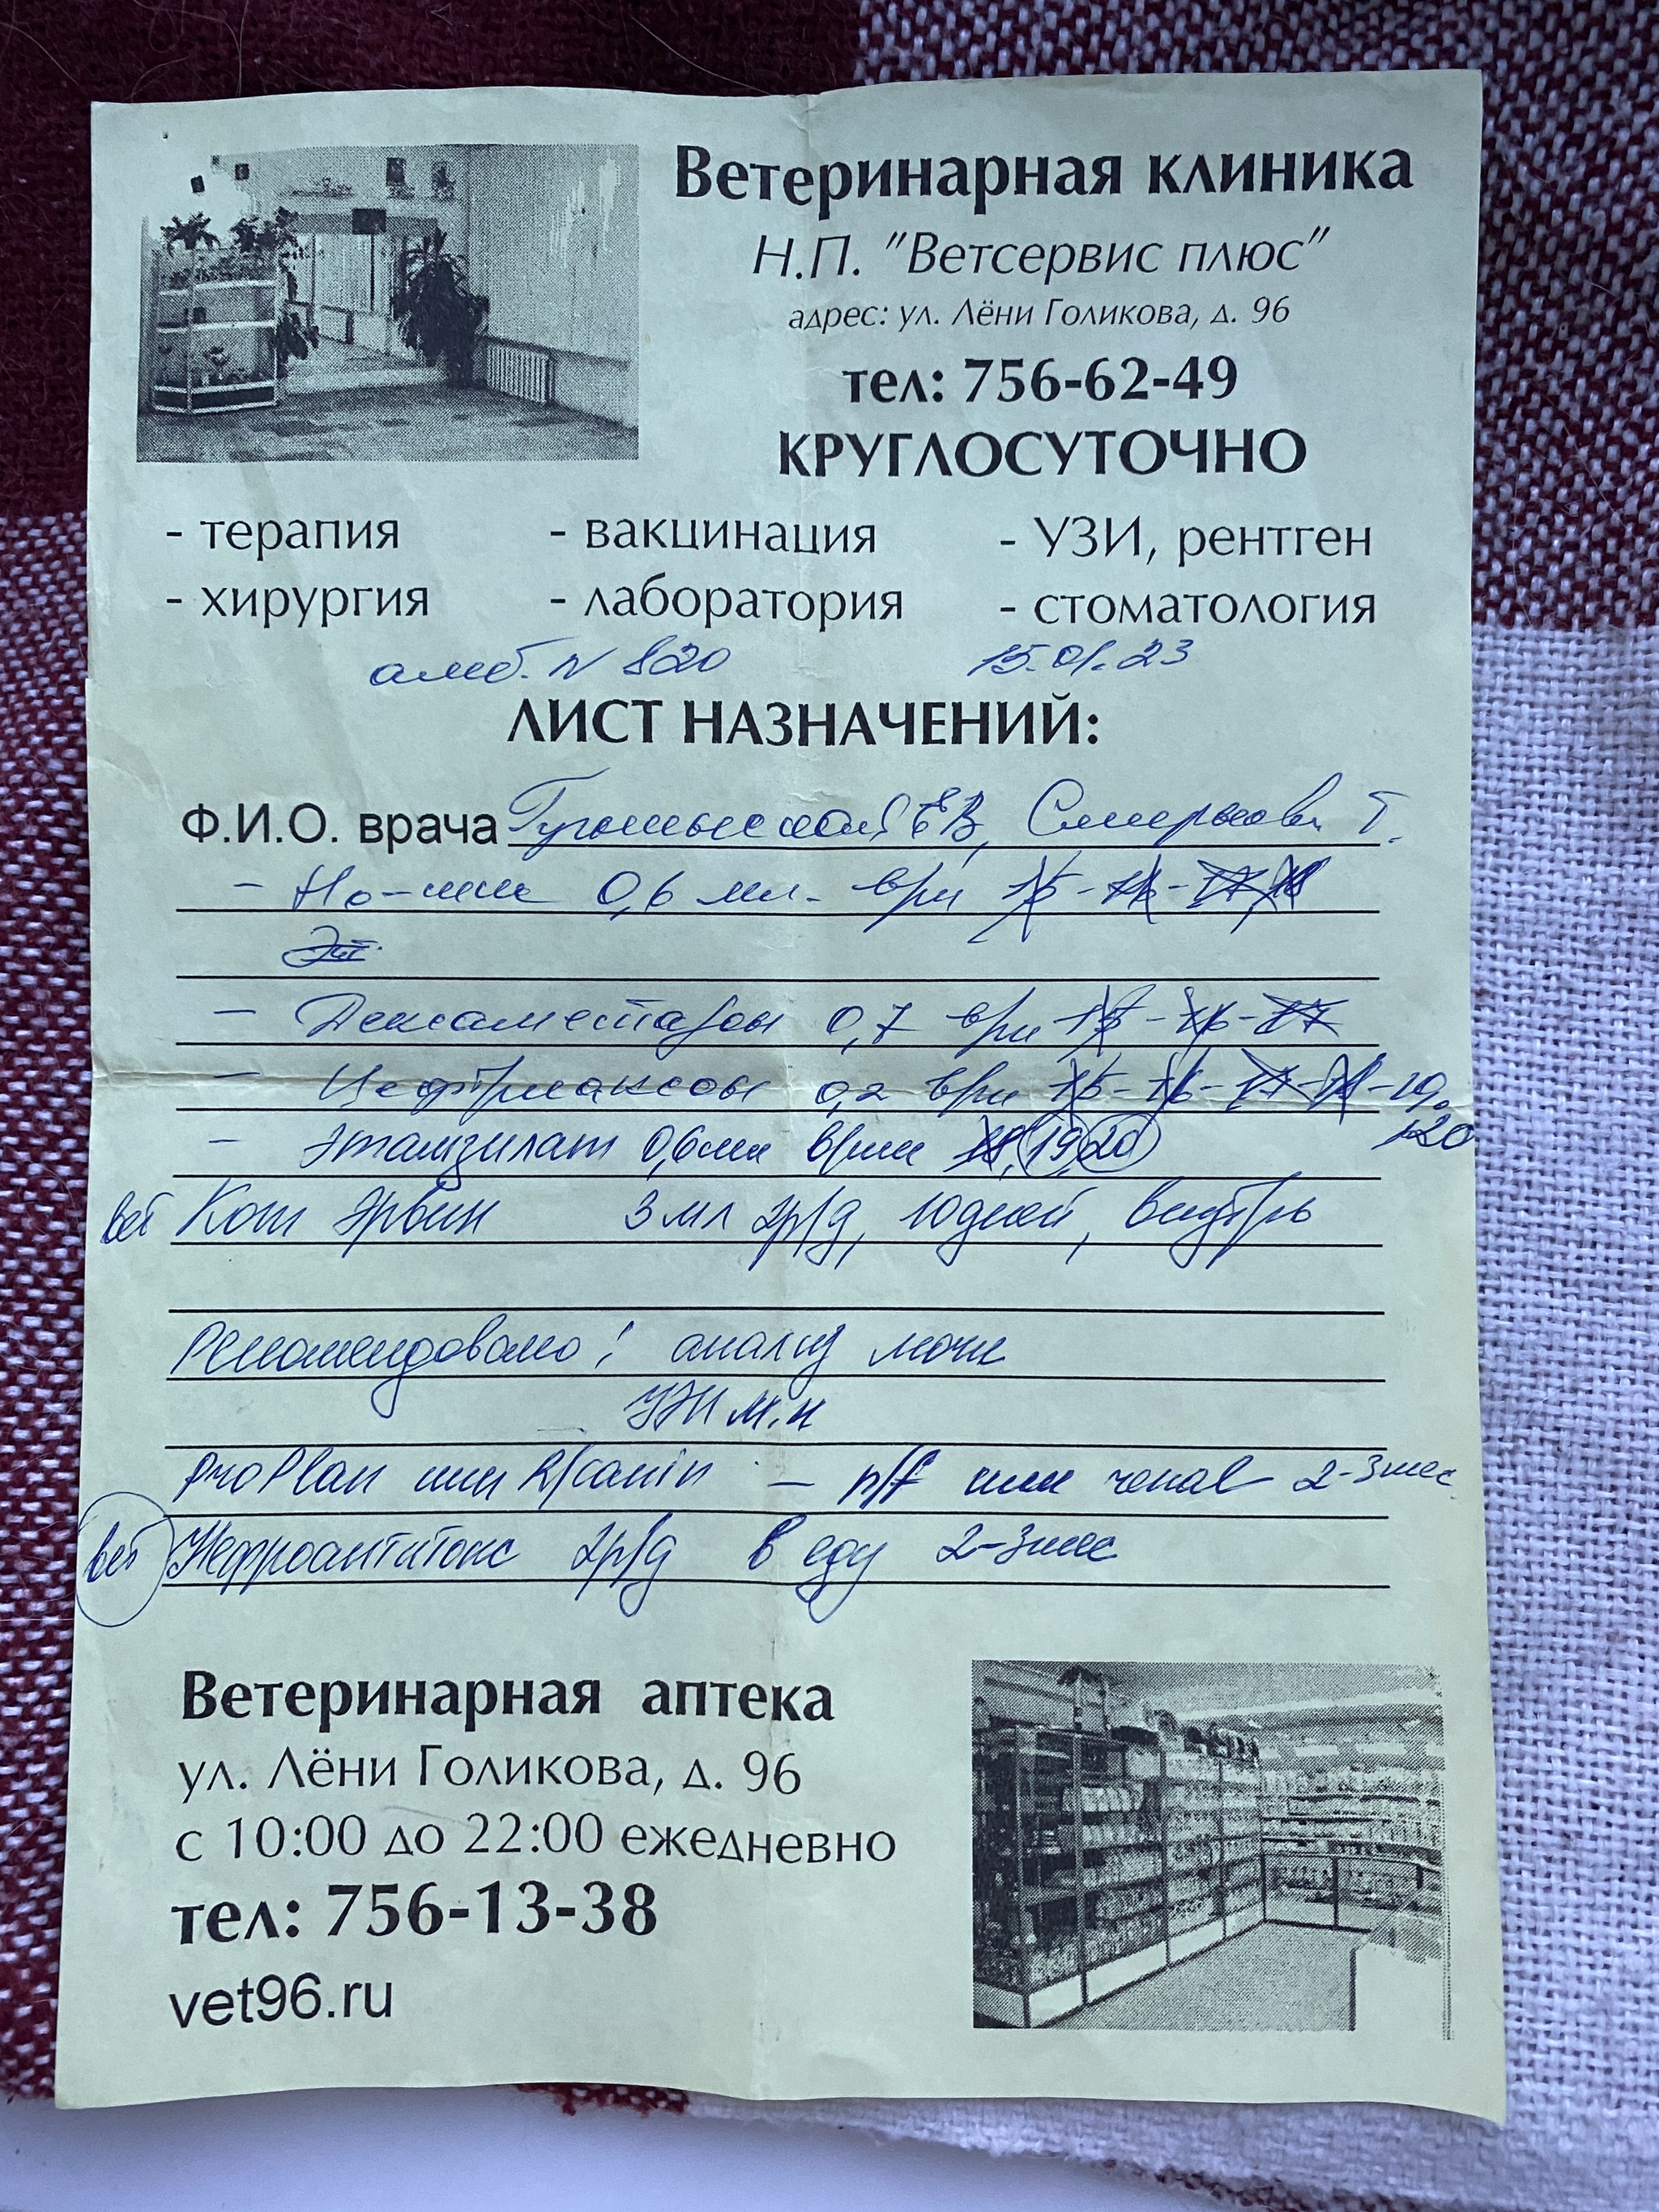 Ветеринарная клиника
Н.П. "Ветсервис плюс"
адрес: ул. Лёни Голикова, д. 96
тел: 756-62-49
КРУГЛОСУТОЧНО
- терапия - вакцинация - УЗИ, рентген
- хирургия - лаборатория - стоматология
амб. N 820 15.01.23
ЛИСТ НАЗНАЧЕНИЙ:
Ф.И.О. врача ЕВ, Смирнова Т.
- Но-шпа 0,6 мл. в/м 15 - 16 - 17, 18
- Дексаметазон 0,7 в/м 15 - 16 - 17
- Цефтриаксон 0,2 в/м 15 - 16 - 17 - 18 - 19,
20
- Этамзилат 0,6мл в/м 18, 19, 20
вет Кот Эрвин 3 мл 2р/д, 10 дней, внутрь
Рекомендовано: анализ мочи
УЗИ м.п
ProPlan или R/canin - п/f или renal 2-3 мес
вет Нефроантитокс 2р/д в еду 2-3 мес
Ветеринарная аптека
ул. Лёни Голикова, д. 96
с 10:00 до 22:00 ежедневно
тел: 756-13-38
vet96.ru